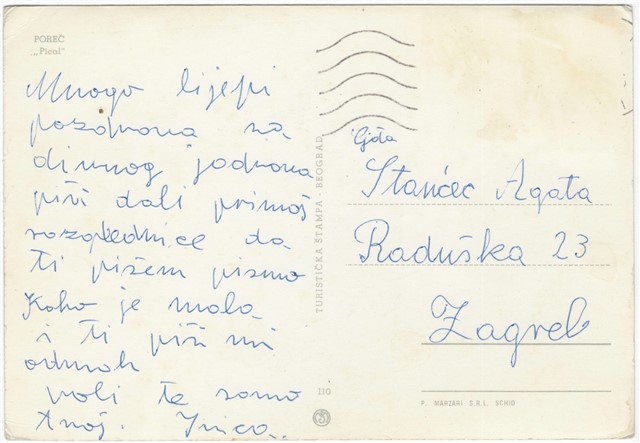 POREČ
„Pical"
Mnogo lijepi
pozdrava sa
divnog jadrana
piši dali primaj
razglednice da
ti pišem pismo
Kako je mala
i ti piši mi
odmah
voli te samo
tvoj. Ivica.
TURISTIČKA ŠTAMPA - BEOGRAD
110
Gjđa
Stančec Agata
Raduška 23
Zagreb
P. MARZARI S.R.L. SCHIO